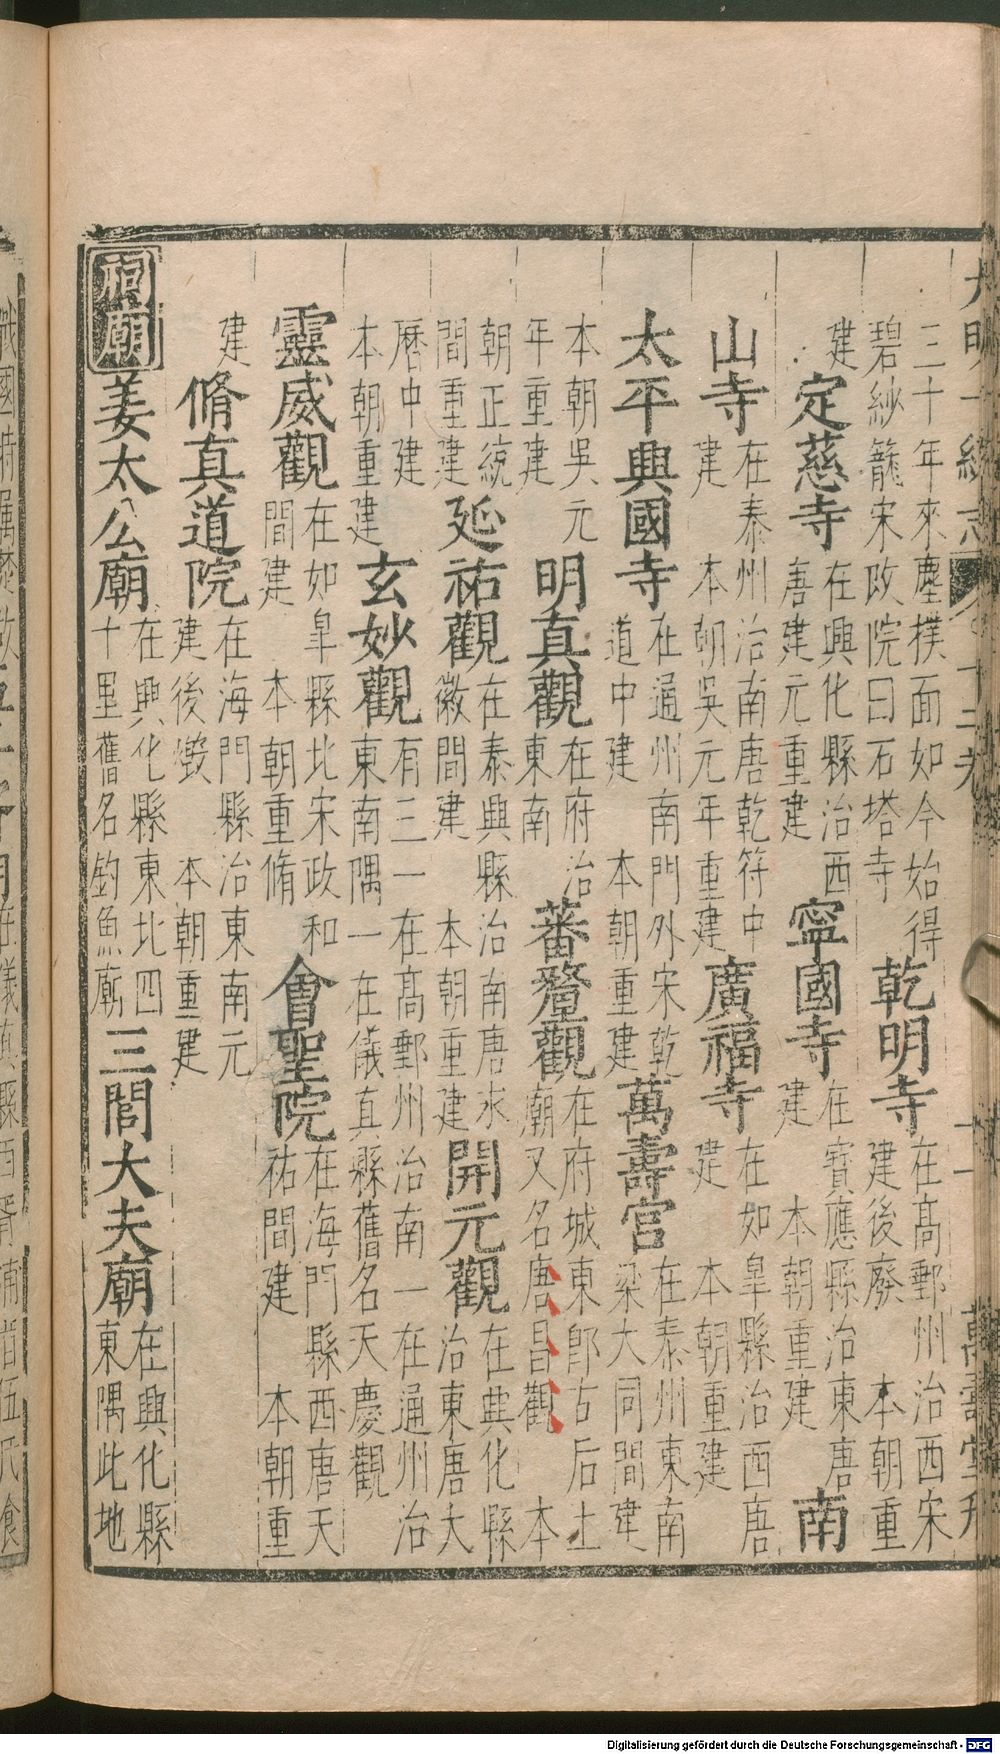 大明一統志 十二卷 十一 萬壽堂刋
三十年來塵撲面如今始得
碧紗籠宋改院曰石塔寺
乾明寺
在高郵州治西宋
建後廢 本朝重
建
定慈寺
在興化縣治西
唐建元重建
寧國寺
在寳應縣治東唐
建 本朝重建
南
山寺
在泰州治南唐乾符中
建 本朝吳元年重建
廣福寺
在如臯縣治西唐
建 本朝重建
太平興國寺
在通州南門外宋乾
道中建 本朝重建
萬壽宫
在泰州東南
梁大同間建
本朝吳元
年重建
明真觀
在府治
東南
蕃釐觀
在府城東卽古后土
廟又名唐昌觀 本
朝正統
間重建
延祐觀
在泰興縣治南唐永
徽間建 本朝重建
開元觀
在興化縣
治東唐大
曆中建
本朝重建
玄妙觀
有三一在高郵州治南一在通州治
東南隅一在儀真縣舊名天慶觀
靈威觀
在如臯縣北宋政和
間建 本朝重脩
會聖院
在海門縣西唐天
祐間建 本朝重
建
脩真道院
在海門縣治東南元
建後燬 本朝重建
祠廟
姜太公廟
在興化縣東北四
十里舊名釣魚廟
三閭大夫廟
在興化縣
東隅此地
Digitalisierung gefördert durch die Deutsche Forschungsgemeinschaft - DFG